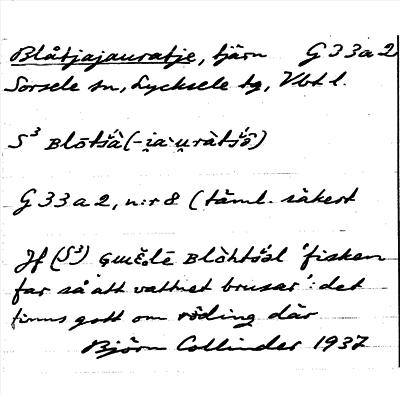 Blåtjajauratje, tjärn G 33 a 2
Sorsele sn, Lycksele tg, Vbt l.
S³ Blōtšà (-i̯a·u̯ràtšò)
G 33 a 2, n:r 8 (täml. säkert
Jf (S³) Guĕlē Blòhtòsl 'fisken
far så att vattnet brusar': det
finns gott om röding där
Björn Collinder 1937